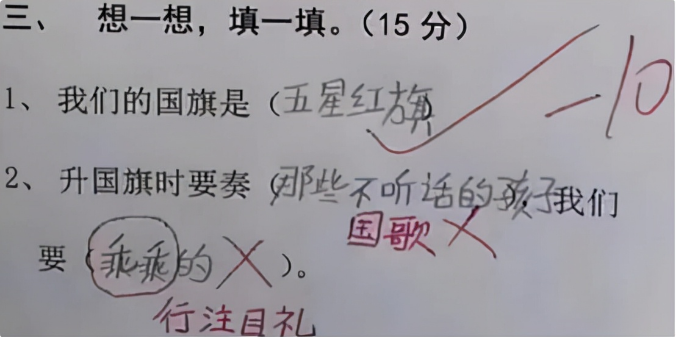 三、 想一想，填一填。（15 分）
-10
1、 我们的国旗是（五星红旗）
2、 升国旗时要奏（那些不听话的孩子），我们
国歌
要（乖乖的）。
行注目礼